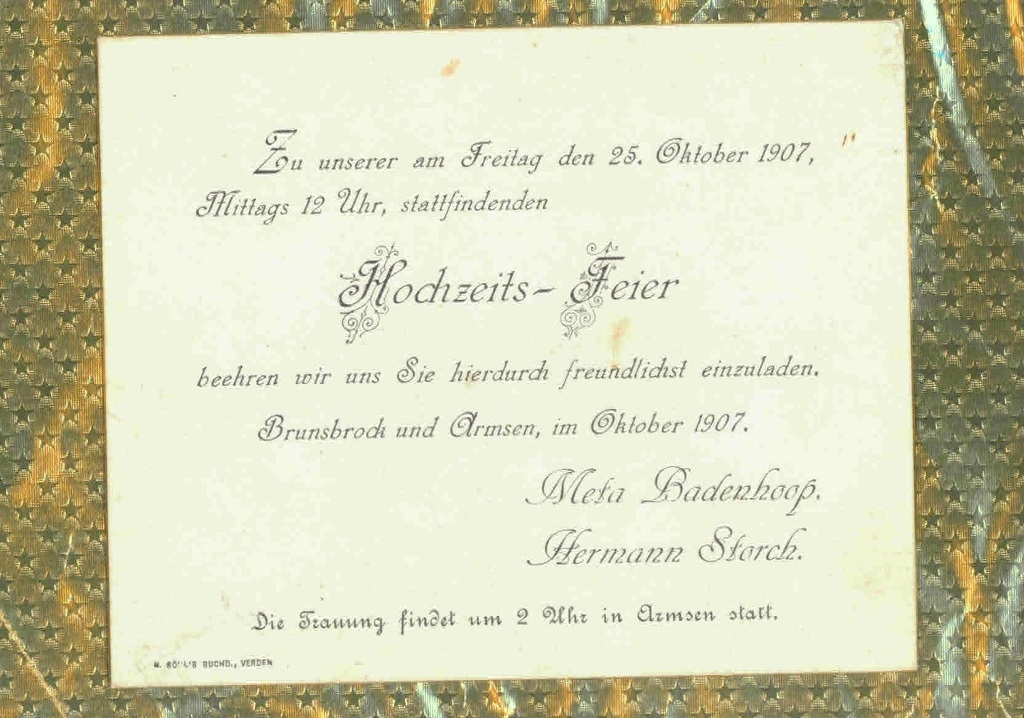 Zu unserer am Freitag den 25. Oktober 1907,
Mittags 12 Uhr, stattfindenden
Hochzeits-Feier
beehren wir uns Sie hierdurch freundlichst einzuladen.
Brunsbrock und Armsen, im Oktober 1907.
Meta Badenhoop.
Hermann Storch.
Die Trauung findet um 2 Uhr in Armsen statt.
BUCHD., VERDEN